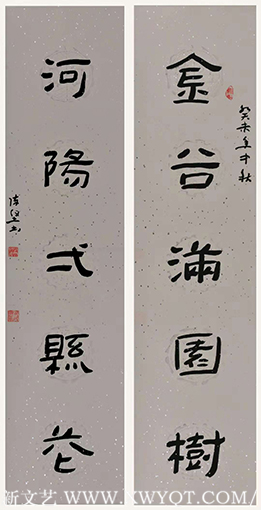 金谷滿園樹
癸未年中秋
河陽弌縣花
新文艺 WWW.XWYQT.COM/